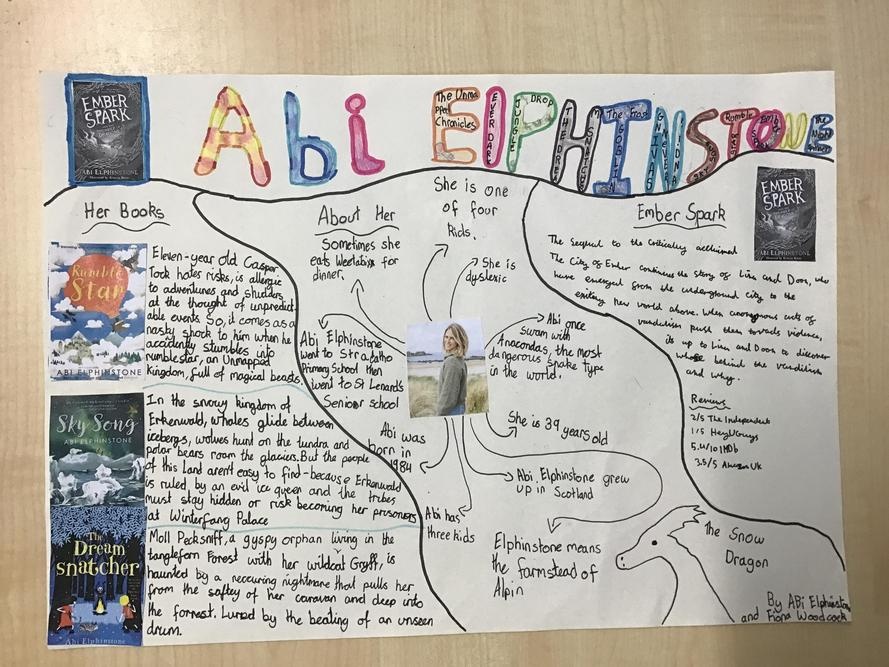 EMBER
SPARK
ABI ELPHINSTONE
Abi ElPHINSTONE
The Unma
pped
Chronicles
EVERDARK
JUNGLE
DROP
Rumble
Her Books
Rumble
Star
ABI ELPHINSTONE
Eleven-year old Casper
Tock hates risks, is allergic
to adventures and shudders
at the thought of unpredict-
able events So, it comes as a
nasty shock to him when he
accidently stumbles into
rumblestar, an Unmapped
kingdom, full of magical beasts.
SKY SONG
ABI ELPHINSTONE
In the snowy kingdom of
Erkenwald, whales glide between
icebergs, wolves hunt on the tundra and
polar bears roam the glaciers. But the people
of this Land aren't easy to find-because Erkenwald
is ruled by an evil ice queen and the tribes
must stay hidden or risk becoming her prisoners
at Winterfang Palace
The
Dream
snatcher
Abi Elphinstone
Moll Pecksniff, a gyspy orphan living in the
tanglefern Forest with her wildcat Gryff, is
haunted by a reccuring nightmare that pulls her
from the saftey of her caravan and deep into
the forrest. Lured by the beating of an unseen
drum.
About Her
Sometimes she
eats Weetabix for
dinner.
She is one
of four
kids.
She is
dyslexic
Abi Elphinstone
went to Stra
Primary School then
went to St Lenard's
Senior school
Abi once
swam with
Anacondas, the most
dangerous snake type
in the world.
She is 39 years old
Abi was
born in
1984
Abi Elphinstone grew
up in Scotland
Abi has
three kids
Elphinstone means
the farmstead of
Alpin
Ember Spark
EMBER
SPARK
ABI ELPHINSTONE
The sequel to the critically acclaimed
The City of Ember continues the story of Lina and Doon, who
have emerged from the underground city to the
exiting new world above. When anonymous acts of
vandalism push them towards violence,
its up to Lina and Doon to discover
whose behind the vandilism
and why.
Reviews
2/5 The Independent
1/5 HeyUGuys
5.4/10 IMDb
3.5/5 Amazon Uk
The Snow
Dragon
By Abi Elphinstone
and Fiona Woodcock